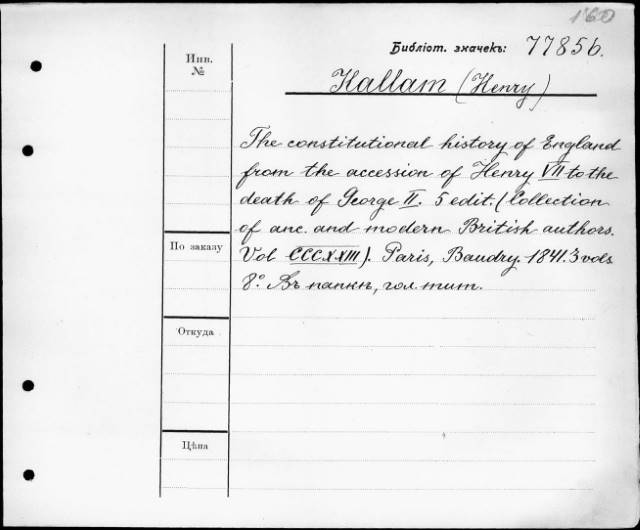 160
Библіот. значекъ: 77856.
Инв.
№
Hallam (Henry)
The constitutional history of England
from the accession of Henry VII to the
death of George II. 5 edit. (Collection
of anc. and modern British authors.
По заказу
Vol CCCXXIII). Paris, Baudry. 1841. 3 vols
8° Въ папкѣ, гол. тит.
Откуда
Цѣна